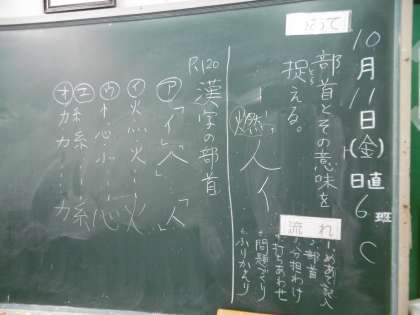 10月11日(金)
日直
6班
めあて
部首とその意味を
捉える。
とら
燃
人イ
流れ
1.めあて記入
2.部首
3.分担わけ
4.打ちあわせ
5.問題づくり
6.ふりかえり
P.120
漢字の部首
ア「イ」「へ」…「人」
イ火灬火…火
ウ忄心㣺…心
エ糸糸…糸
オカカ…力